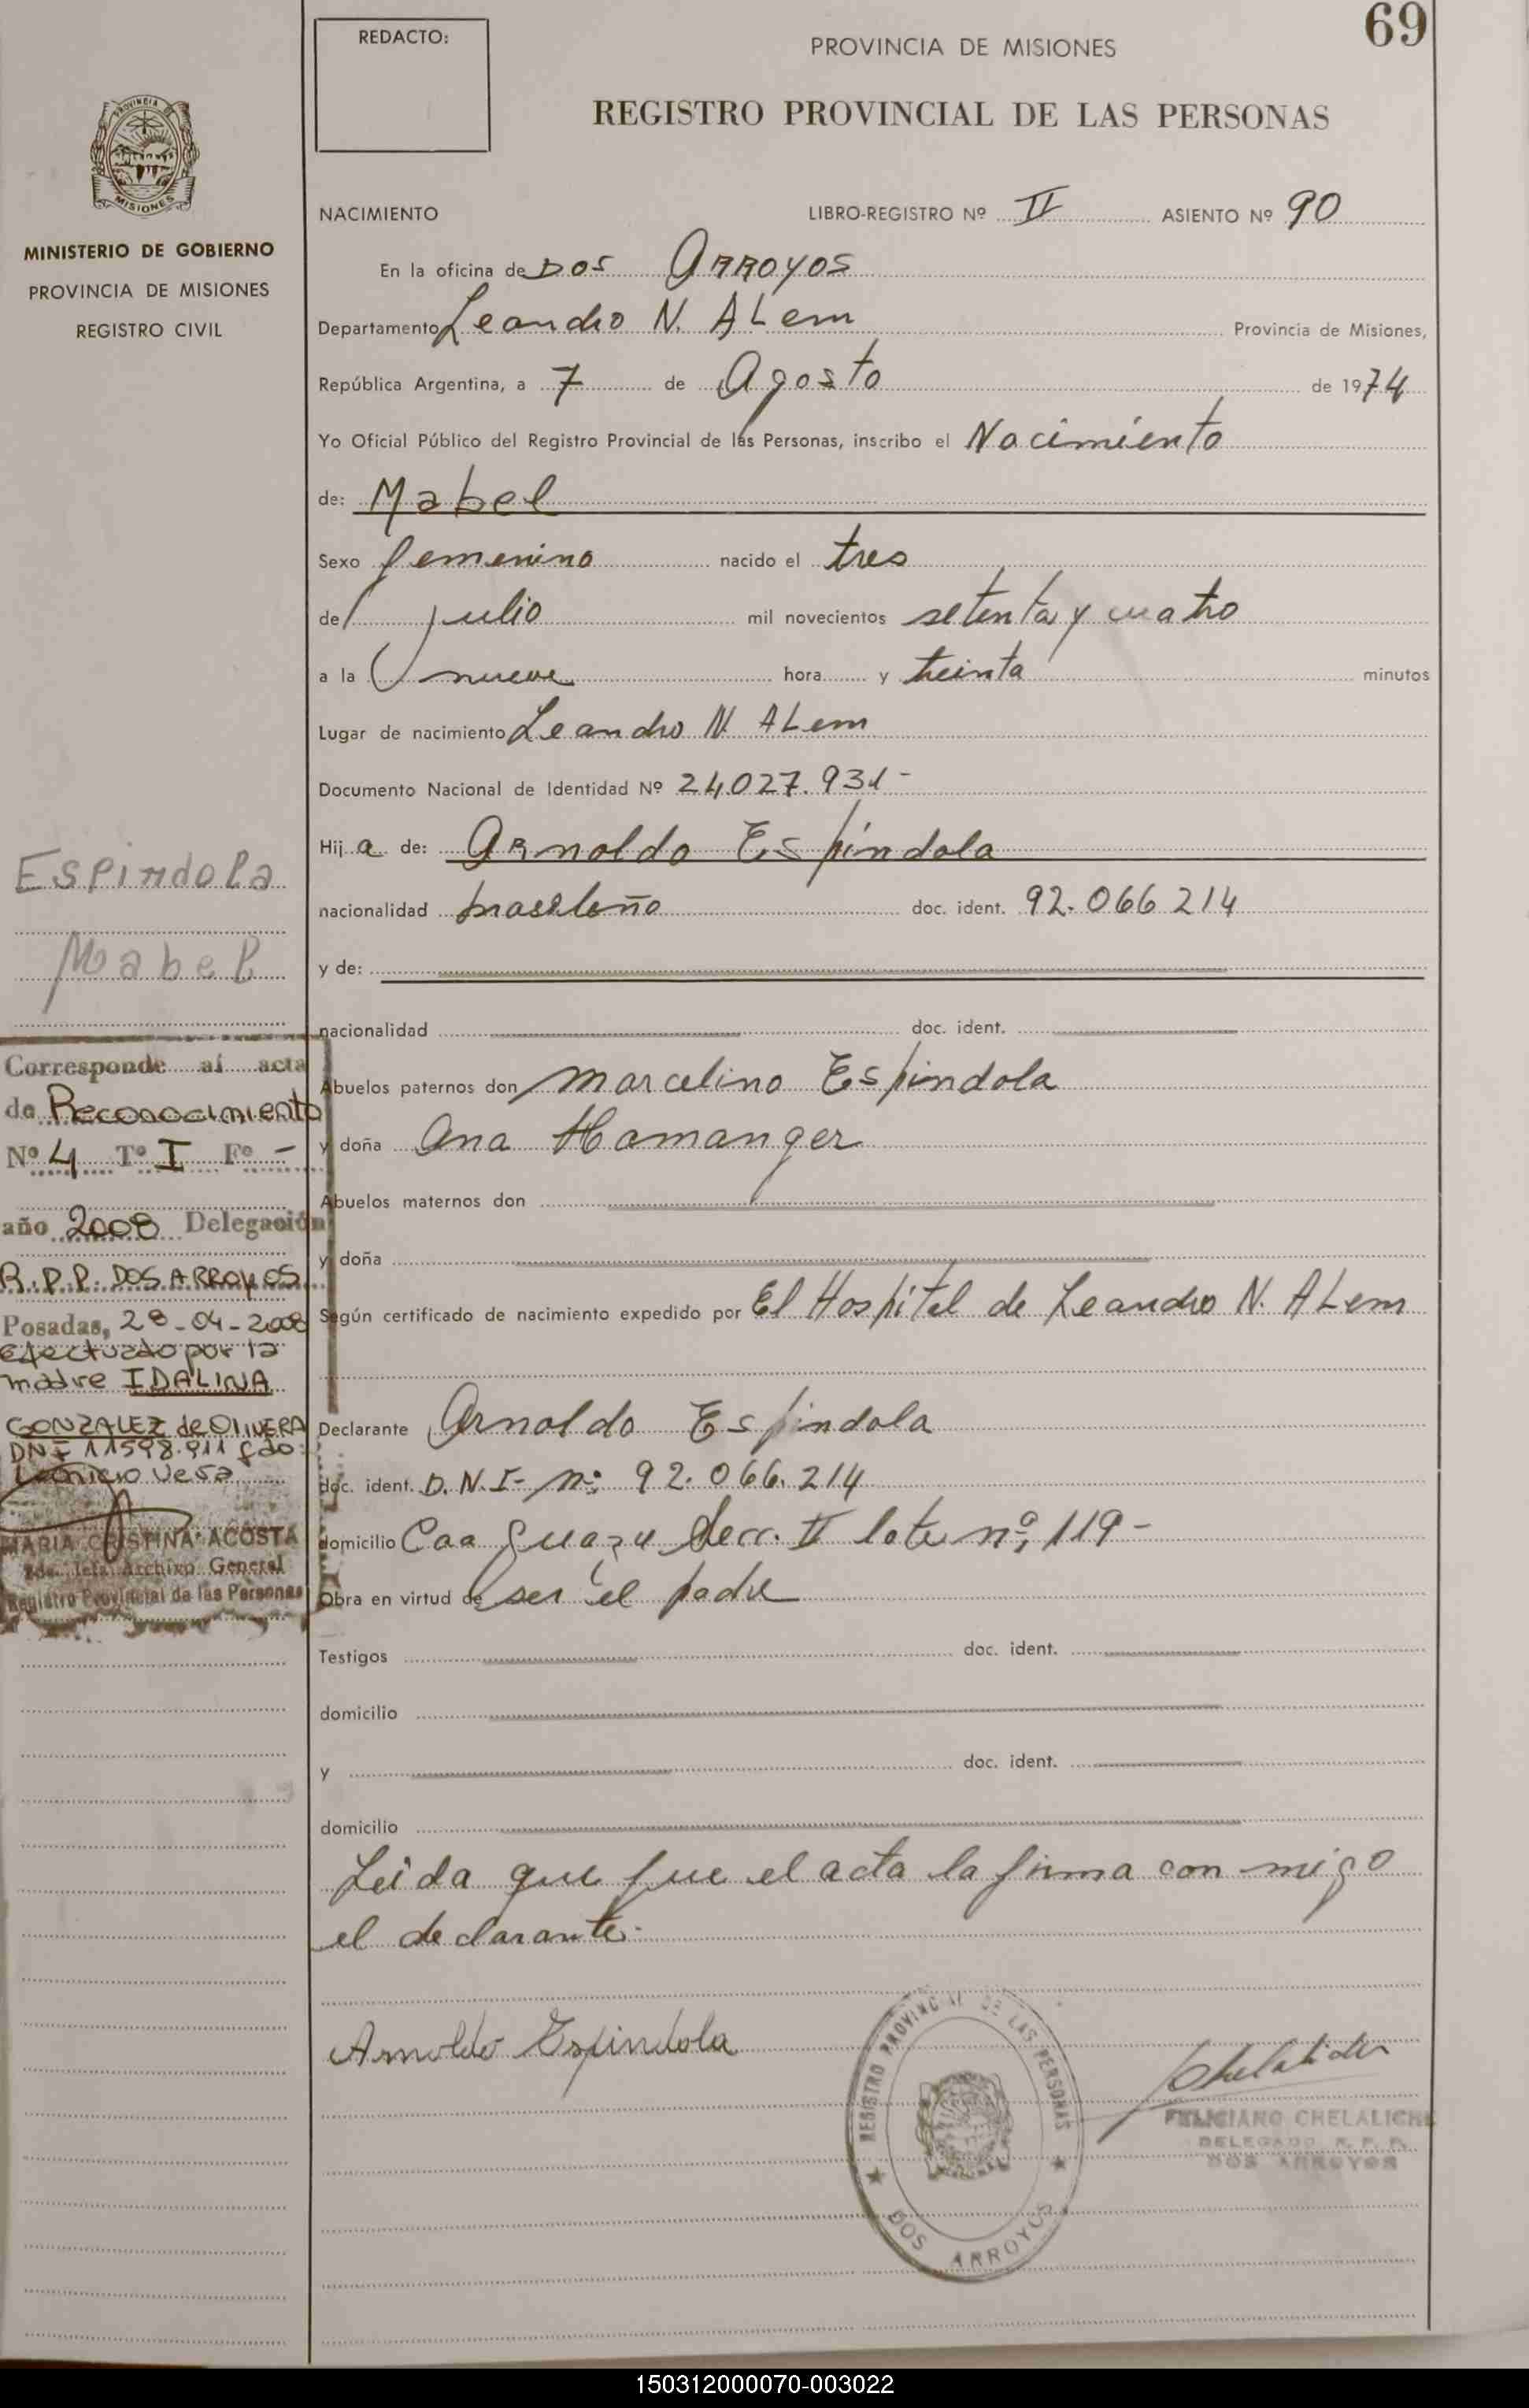 69
REDACTO:
PROVINCIA DE MISIONES
REGISTRO PROVINCIAL DE LAS PERSONAS
PROVINCIA
MISIONES
MINISTERIO DE GOBIERNO
PROVINCIA DE MISIONES
REGISTRO CIVIL
NACIMIENTO LIBRO-REGISTRO Nº II ASIENTO Nº 90
En la oficina de Dos Arroyos
Departamento Leandro N. ALem Provincia de Misiones,
República Argentina, a 7 de Agosto de 1974
Yo Oficial Público del Registro Provincial de las Personas, inscribo el Nacimiento
de: Mabel
Sexo femenino nacido el tres
de julio mil novecientos setenta y cuatro
a la nueve hora y treinta minutos
Lugar de nacimiento Leandro N. ALem
Documento Nacional de Identidad Nº 24.027.931-
Hija de: Arnoldo Espíndola
nacionalidad brasileño doc. ident. 92.066 214
y de:
nacionalidad doc. ident.
Abuelos paternos don Marcelino Espindola
y doña Ana Hamanger
Abuelos maternos don
y doña
Según certificado de nacimiento expedido por El Hospital de Leandro N. ALem
Declarante Arnoldo Espindola
doc. ident. D.N.I- nº: 92.066.214
domicilio Caa Guazu Secc. II lote nº, 119-
Obra en virtud de ser el padre
Testigos doc. ident.
domicilio
y doc. ident.
domicilio
Leida que fue el acta la firma con migo
el declarante.
Arnoldo Espindola
REGISTRO PROVINCIAL DE LAS PERSONAS
DOS ARROYOS
FELICIANO CHELALICHE
DELEGADO R. P. P.
DOS ARROYOS
Espindola
Mabel
Corresponde al acta
de Reconocimiento
Nº 4 Tº I Fº -
año 2008 Delegación
R.P.P. DOS ARROYOS
Posadas, 28-04-2008
efectuado por la
madre IDALINA
GONZALEZ de OLIVERA
DNI 11598.911 fdo:
Vesa
MARIA CRISTINA ACOSTA
2da. Jefa Archivo General
Registro Provincial de las Personas
150312000070-003022